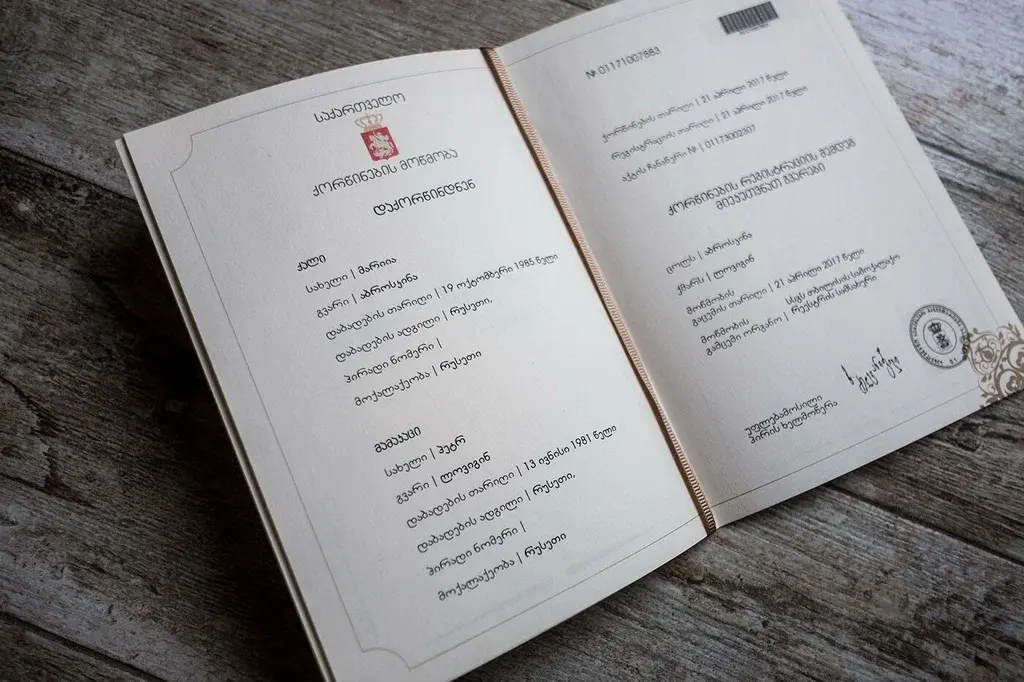 საქართველო
ქორწინების მოწმობა
დაქორწინდნენ
ქალი
სახელი | მარიია
გვარი | აბროსკინა
დაბადების თარიღი | 19 ოქტომბერი 1985 წელი
დაბადების ადგილი | რუსეთი,
პირადი ნომერი |
მოქალაქეობა | რუსეთი
მამაკაცი
სახელი | პეტრ
გვარი | ლოვიგინ
დაბადების თარიღი | 13 ივნისი 1981 წელი
დაბადების ადგილი | რუსეთი,
პირადი ნომერი |
მოქალაქეობა | რუსეთი
№ 01171007883
ქორწინების თარიღი | 21 აპრილი 2017 წელი
რეგისტრაციის თარიღი | 21 აპრილი 2017 წელი
აქტის ჩანაწერი № | 01173002307
ქორწინების რეგისტრაციის შემდეგ
მიეკუთვნათ გვარები
ცოლს | აბროსკინა
ქმარს | ლოვიგინ
მოწმობის
გაცემის თარიღი | 21 აპრილი 2017 წელი
მოწმობის
გამცემი ორგანო | სსგს თბილისის სამოქალაქო
რეესტრის სამსახური
უფლებამოსილი
პირის ხელმოწერა